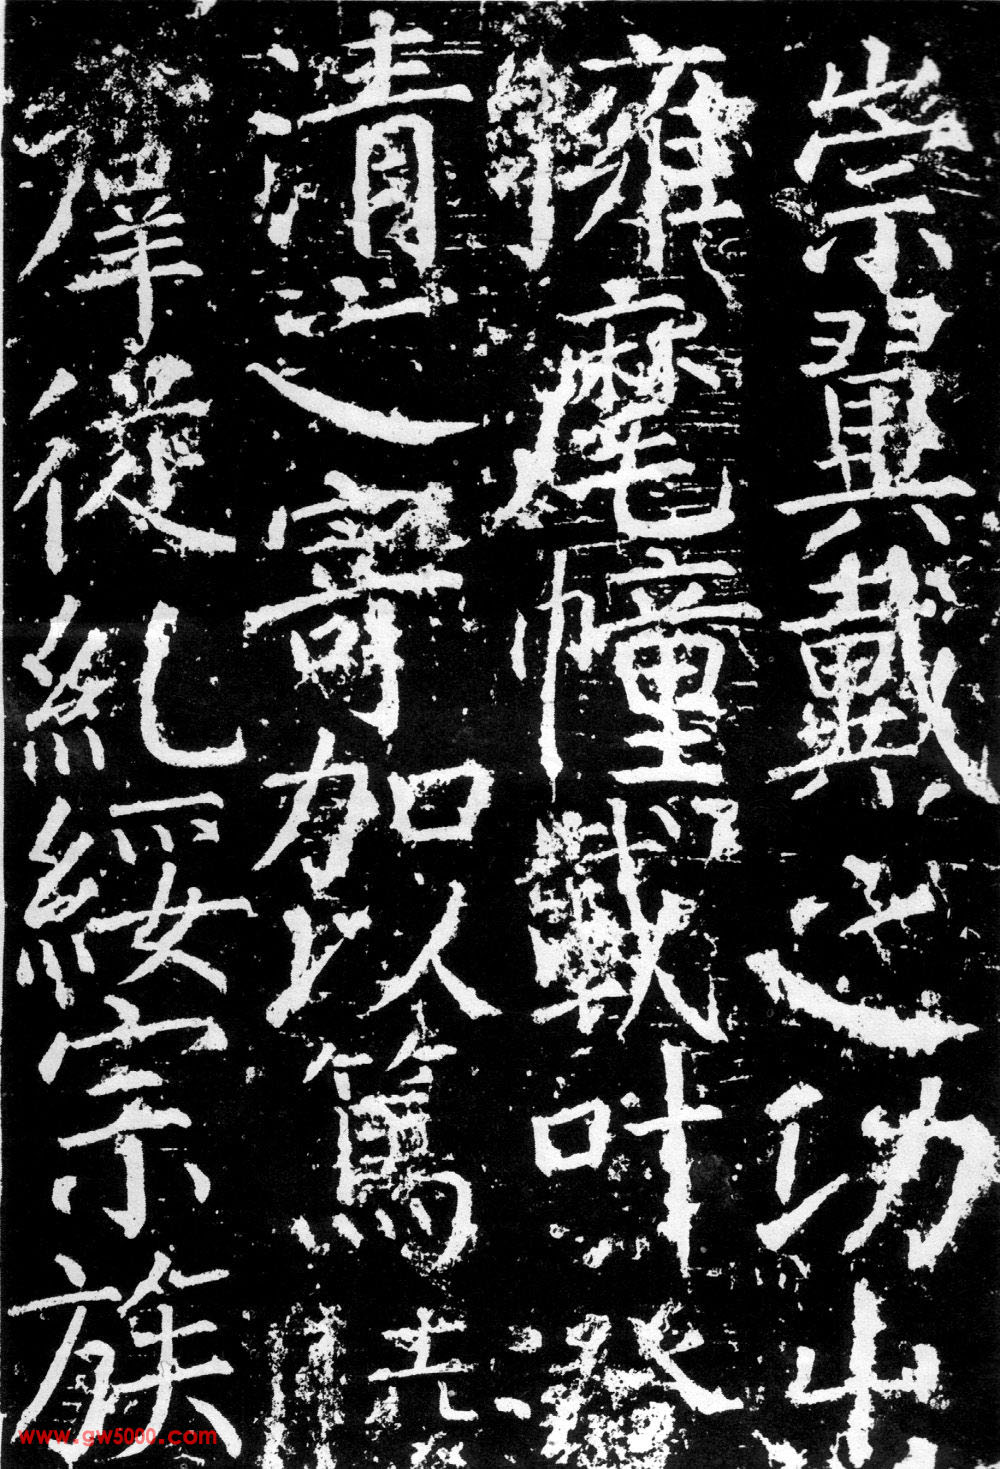 崇翼戴之功出
擁麾幢載叶澄
清之寄加以篤睦
羣從糺綏宗族
www.gw5000.com